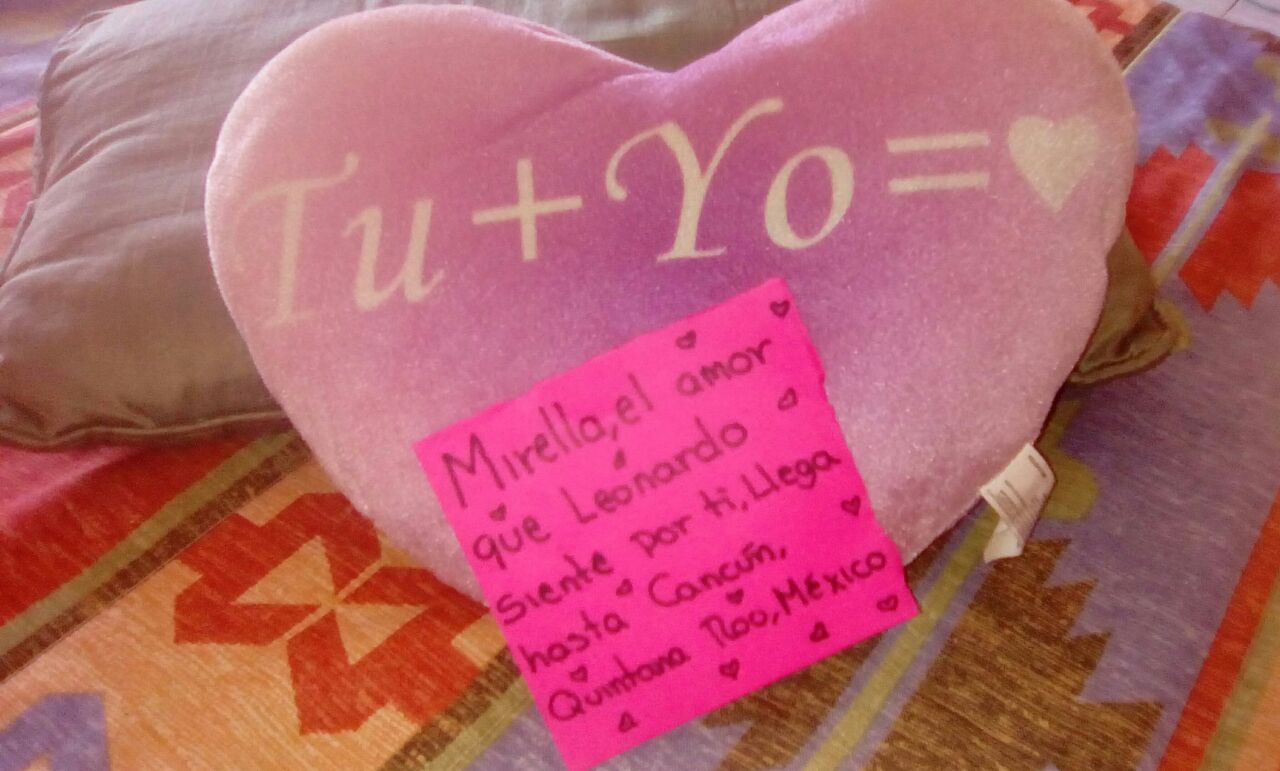 Tu + Yo = ♥
Mirella, el amor
que Leonardo
siente por ti, llega
hasta Cancún,
Quintana Roo, México